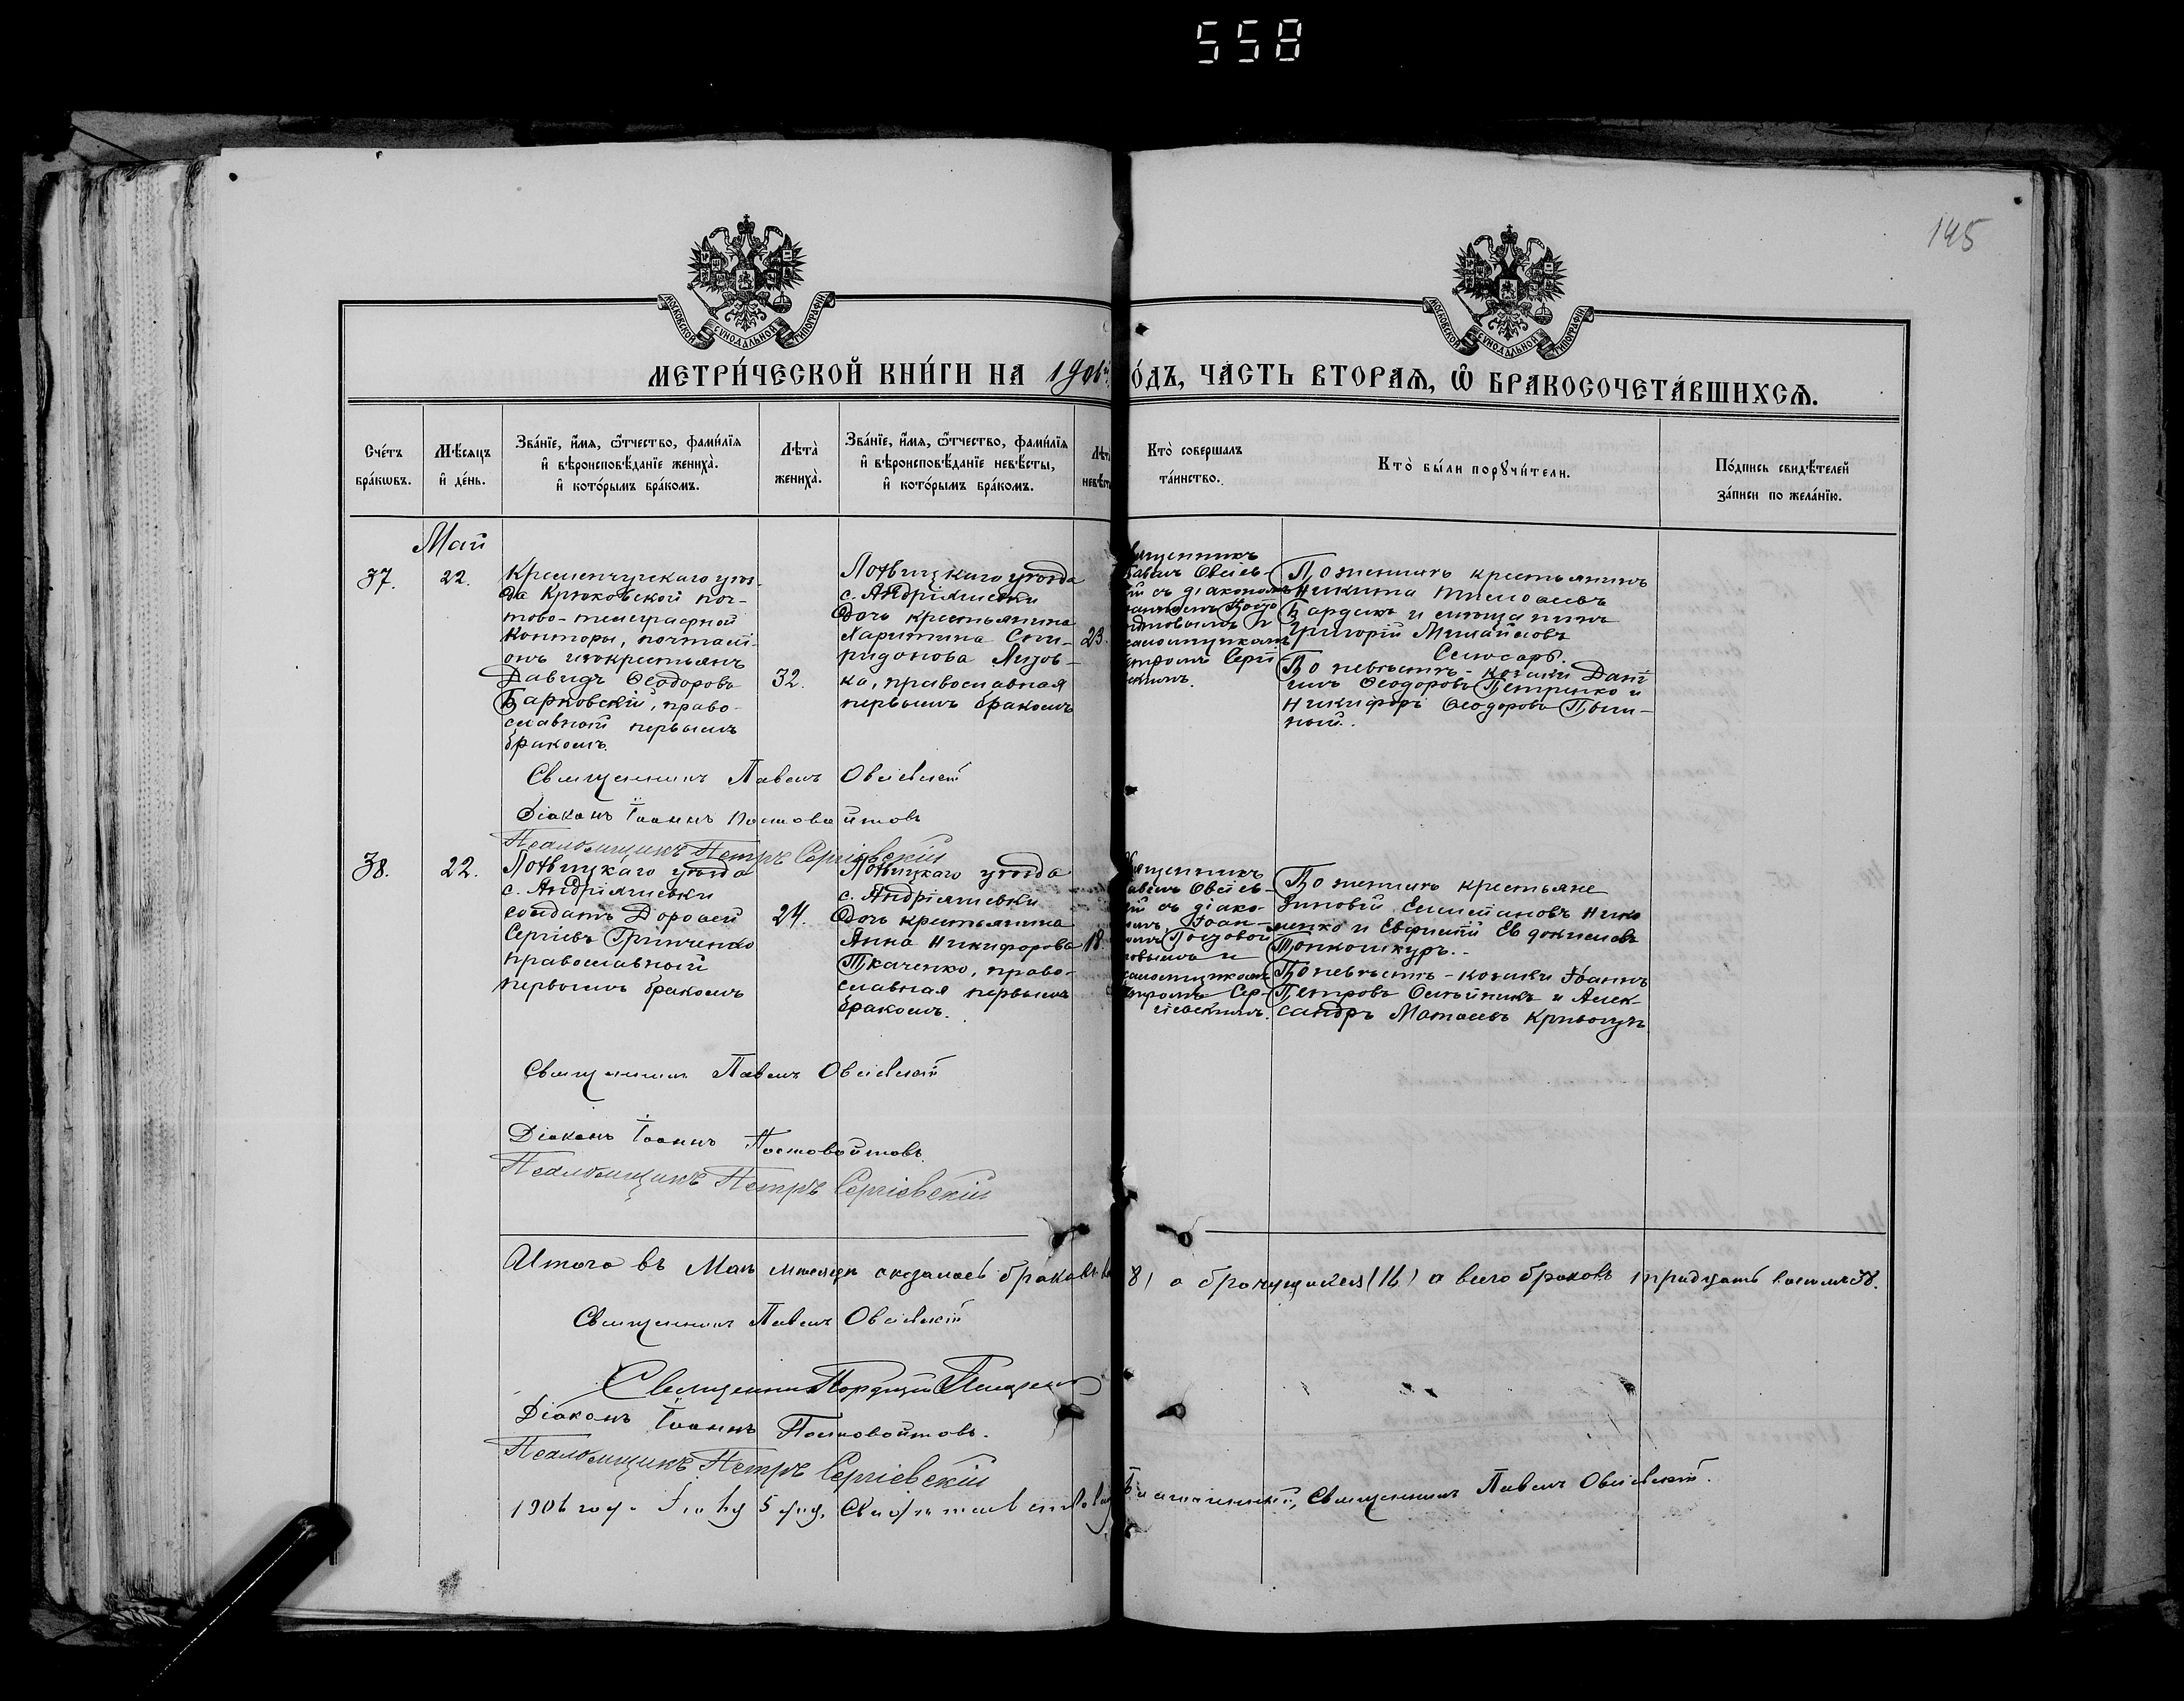 558
145
МОСКОВСКОЙ СУНОДАЛЬНОЙ ТИПОГРАФІИ
МОСКОВСКОЙ СУНОДАЛЬНОЙ ТИПОГРАФІИ
МЕТРИ́ЧЕСКОЙ КНИ́ГИ НА 1906 О́ДЪ, ЧА́СТЬ ВТОРА́Ѧ, Ѡ҆ БРАКОСОЧЕТА́ВШИХСѦ.
Сче́тъ бра́кѡвъ.
Мѣ́сяцъ и҆ де́нь.
Зва́нїе, и҆́мя, ѻ҆́тчество, фами́лїя и҆ вѣроисповѣ́данїе жениха̀. и҆ кото́рымъ бра́комъ.
Лѣта̀ жениха̀.
Зва́нїе, и҆́мя, ѻ҆́тчество, фами́лїя и҆ вѣроисповѣ́данїе невѣ́сты, и҆ кото́рымъ бра́комъ.
Лѣт невѣст
Кто̀ соверша́лъ та́инство.
Кто̀ бы́ли порꙋчи́тели.
По́дпись свидѣ́телей за́писи по жела́нїю.
Май
37.
22.
Кременчугскаго уѣз-
да Крюковской поч-
тово-телеграфной
конторы, почталі-
онъ изъ крестьянъ
Давидъ Ѳеодоровъ
Барковскій, право-
славный первымъ
бракомъ.
32.
Лохвицкаго уѣзда
с. Андріяшевки
дочь крестьянина
Харитина Спи-
ридонова Лизов-
ка, православная
первымъ бракомъ
23.
вященникъ
Павелъ Овсіев-
ій съ діакономъ
Посто
йтовымъ и
саломщикомъ
етромъ Сергі
евскимъ.
По женихѣ крестьянинъ
Никита Тимоѳеевъ
Бардакъ и мѣщанинъ
Григорій Михайловъ
Слюсарь.
По невѣстѣ - козаки Дані-
илъ Ѳеодоровъ Петренко и
Никифоръ Ѳеодоровъ
ный.
Священникъ Павелъ Овсіевскій
Діаконъ Іоаннъ Постовойтовъ
Псаломщикъ Петръ Сергіевскій
38.
22.
Лохвицкаго уѣзда
с. Андріяшевки
солдатъ Дороѳей
Сергіевъ Гринченко
православный
первымъ бракомъ
24.
Лохвицкаго уѣзда
с. Андріяшевки
дочь крестьянина
Анна Никифорова
Ткаченко, право-
славная первымъ
бракомъ.
18.
вященникъ
авелъ Овсіев-
ій съ діако-
номъ Іоан-
номъ Постовой
товымъ и
саломщикомъ
етромъ Сер-
гіевскимъ.
По женихѣ крестьяне
Зиновій Емеліановъ Нико
ленко и Евфимій Евдокимовъ
Тонкошкуръ.-
По невѣстѣ - козаки Іоаннъ
Петровъ Олѣйникъ и Алек-
сандръ Матѳеевъ Кривогузъ
Священникъ Павелъ Овсіевскій
Діаконъ Іоаннъ Постовойтовъ.
Псаломщикъ Петръ Сергіевскій
Итого въ Маѣ мѣсяцѣ оказалось браковъ 8) а брачущихся (16) а всего браковъ тридцать восемь 38.
Священникъ Павелъ Овсіевскій
Священникъ
Діаконъ Іоаннъ Постовойтовъ.
Псаломщикъ Петръ Сергіевскій
1906 года 5 дня, Священникъ Павелъ Овсіевскій.